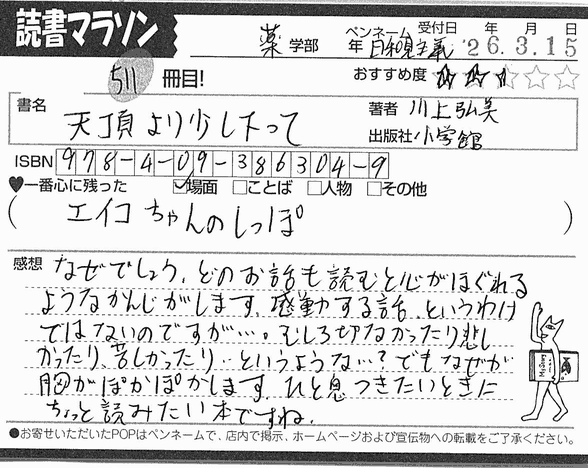 読書マラソン
薬 学部 年 ペンネーム 日和見主義 受付日 年 月 日
'26.3.15
511 冊目!
おすすめ度 ★★★☆☆
書名 天頂より少し下って
著者 川上弘美
出版社 小学館
ISBN 978-4-09-386304-9
♥一番心に残った ☑場面 □ことば □人物 □その他
(エイコちゃんのしっぽ)
感想 なぜでしょう、どのお話も読むと心がほぐれる
ようなかんじがします。感動する話、というわけ
ではないのですが…。むしろ切なかったり悲し
かったり、苦しかったり…というような…?でもなぜか
胸がぽかぽかします。ひと息つきたいときに
ちょっと読みたい本ですね。
●お寄せいただいたPOPはペンネームで、店内で掲示、ホームページおよび宣伝物への転載をご了承ください。